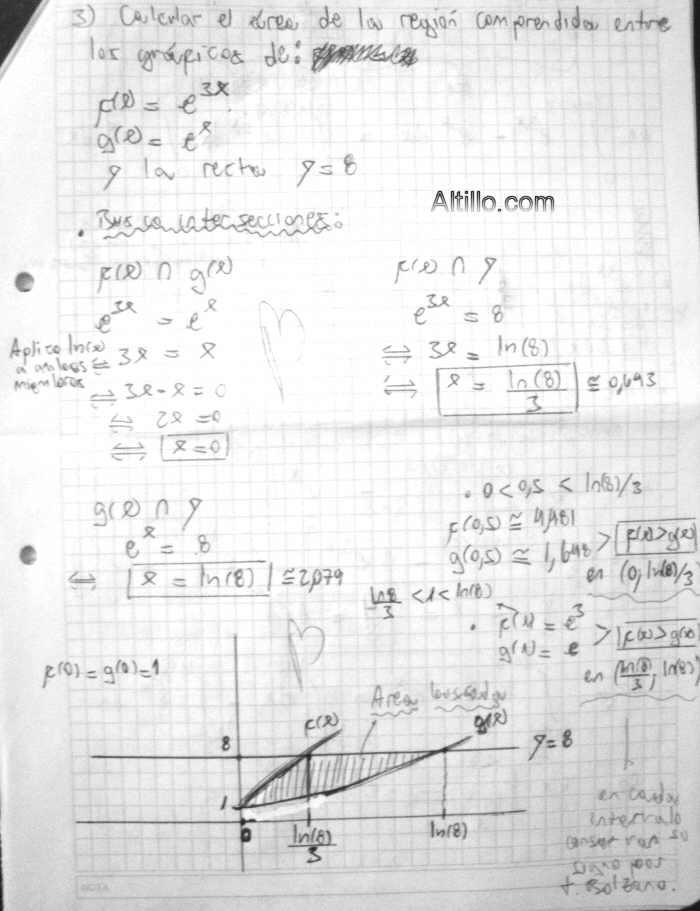 3) Calcular el área de la región comprendida entre
los gráficos de:
f(x) = e^{3x}
g(x) = e^x
y la recta y = 8
Altillo.com
• Busco intersecciones:
f(x) ∩ g(x)
e^{3x} = e^x
Aplico ln(x)
a ambos
miembros
⇔ 3x = x
⇔ 3x - x = 0
⇔ 2x = 0
⇔ x = 0
f(x) ∩ y
e^{3x} = 8
⇔ 3x = ln(8)
⇔ x = ln(8)/3 ≅ 0,693
g(x) ∩ y
e^x = 8
⇔ x = ln(8) ≅ 2,079
• 0 < 0,5 < ln(8)/3
f(0,5) ≅ 4,481
g(0,5) ≅ 1,648 > f(x) > g(x)
en (0, ln(8)/3)
ln 8/3 < 1 < ln(8)
• f(1) = e^3
g(1) = e > f(x) > g(x)
en (ln(8)/3, ln(8))
f(0) = g(0) = 1
Area buscada
f(x)
g(x)
8
y = 8
1
0
ln(8)/3
ln(8)
en cada
intervalo
conservan su
signo por
t. Bolzano.